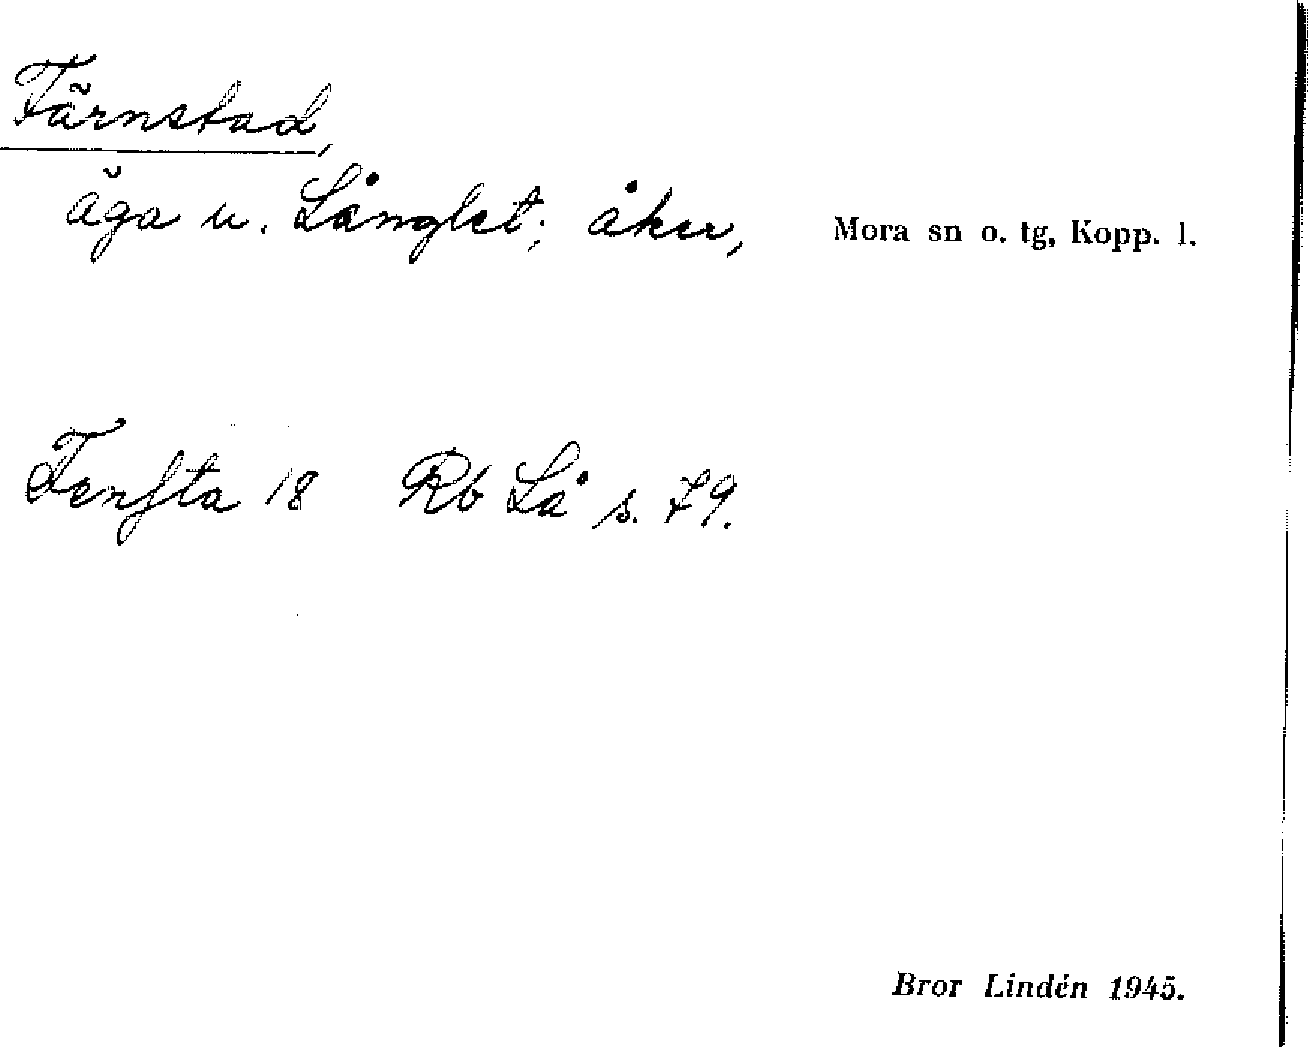 Färnstad,
äga u. Långlet; åker, Mora sn o. tg, Kopp. l.
Fensta 18 Rb Lå s. 79.
Bror Lindén 1945.